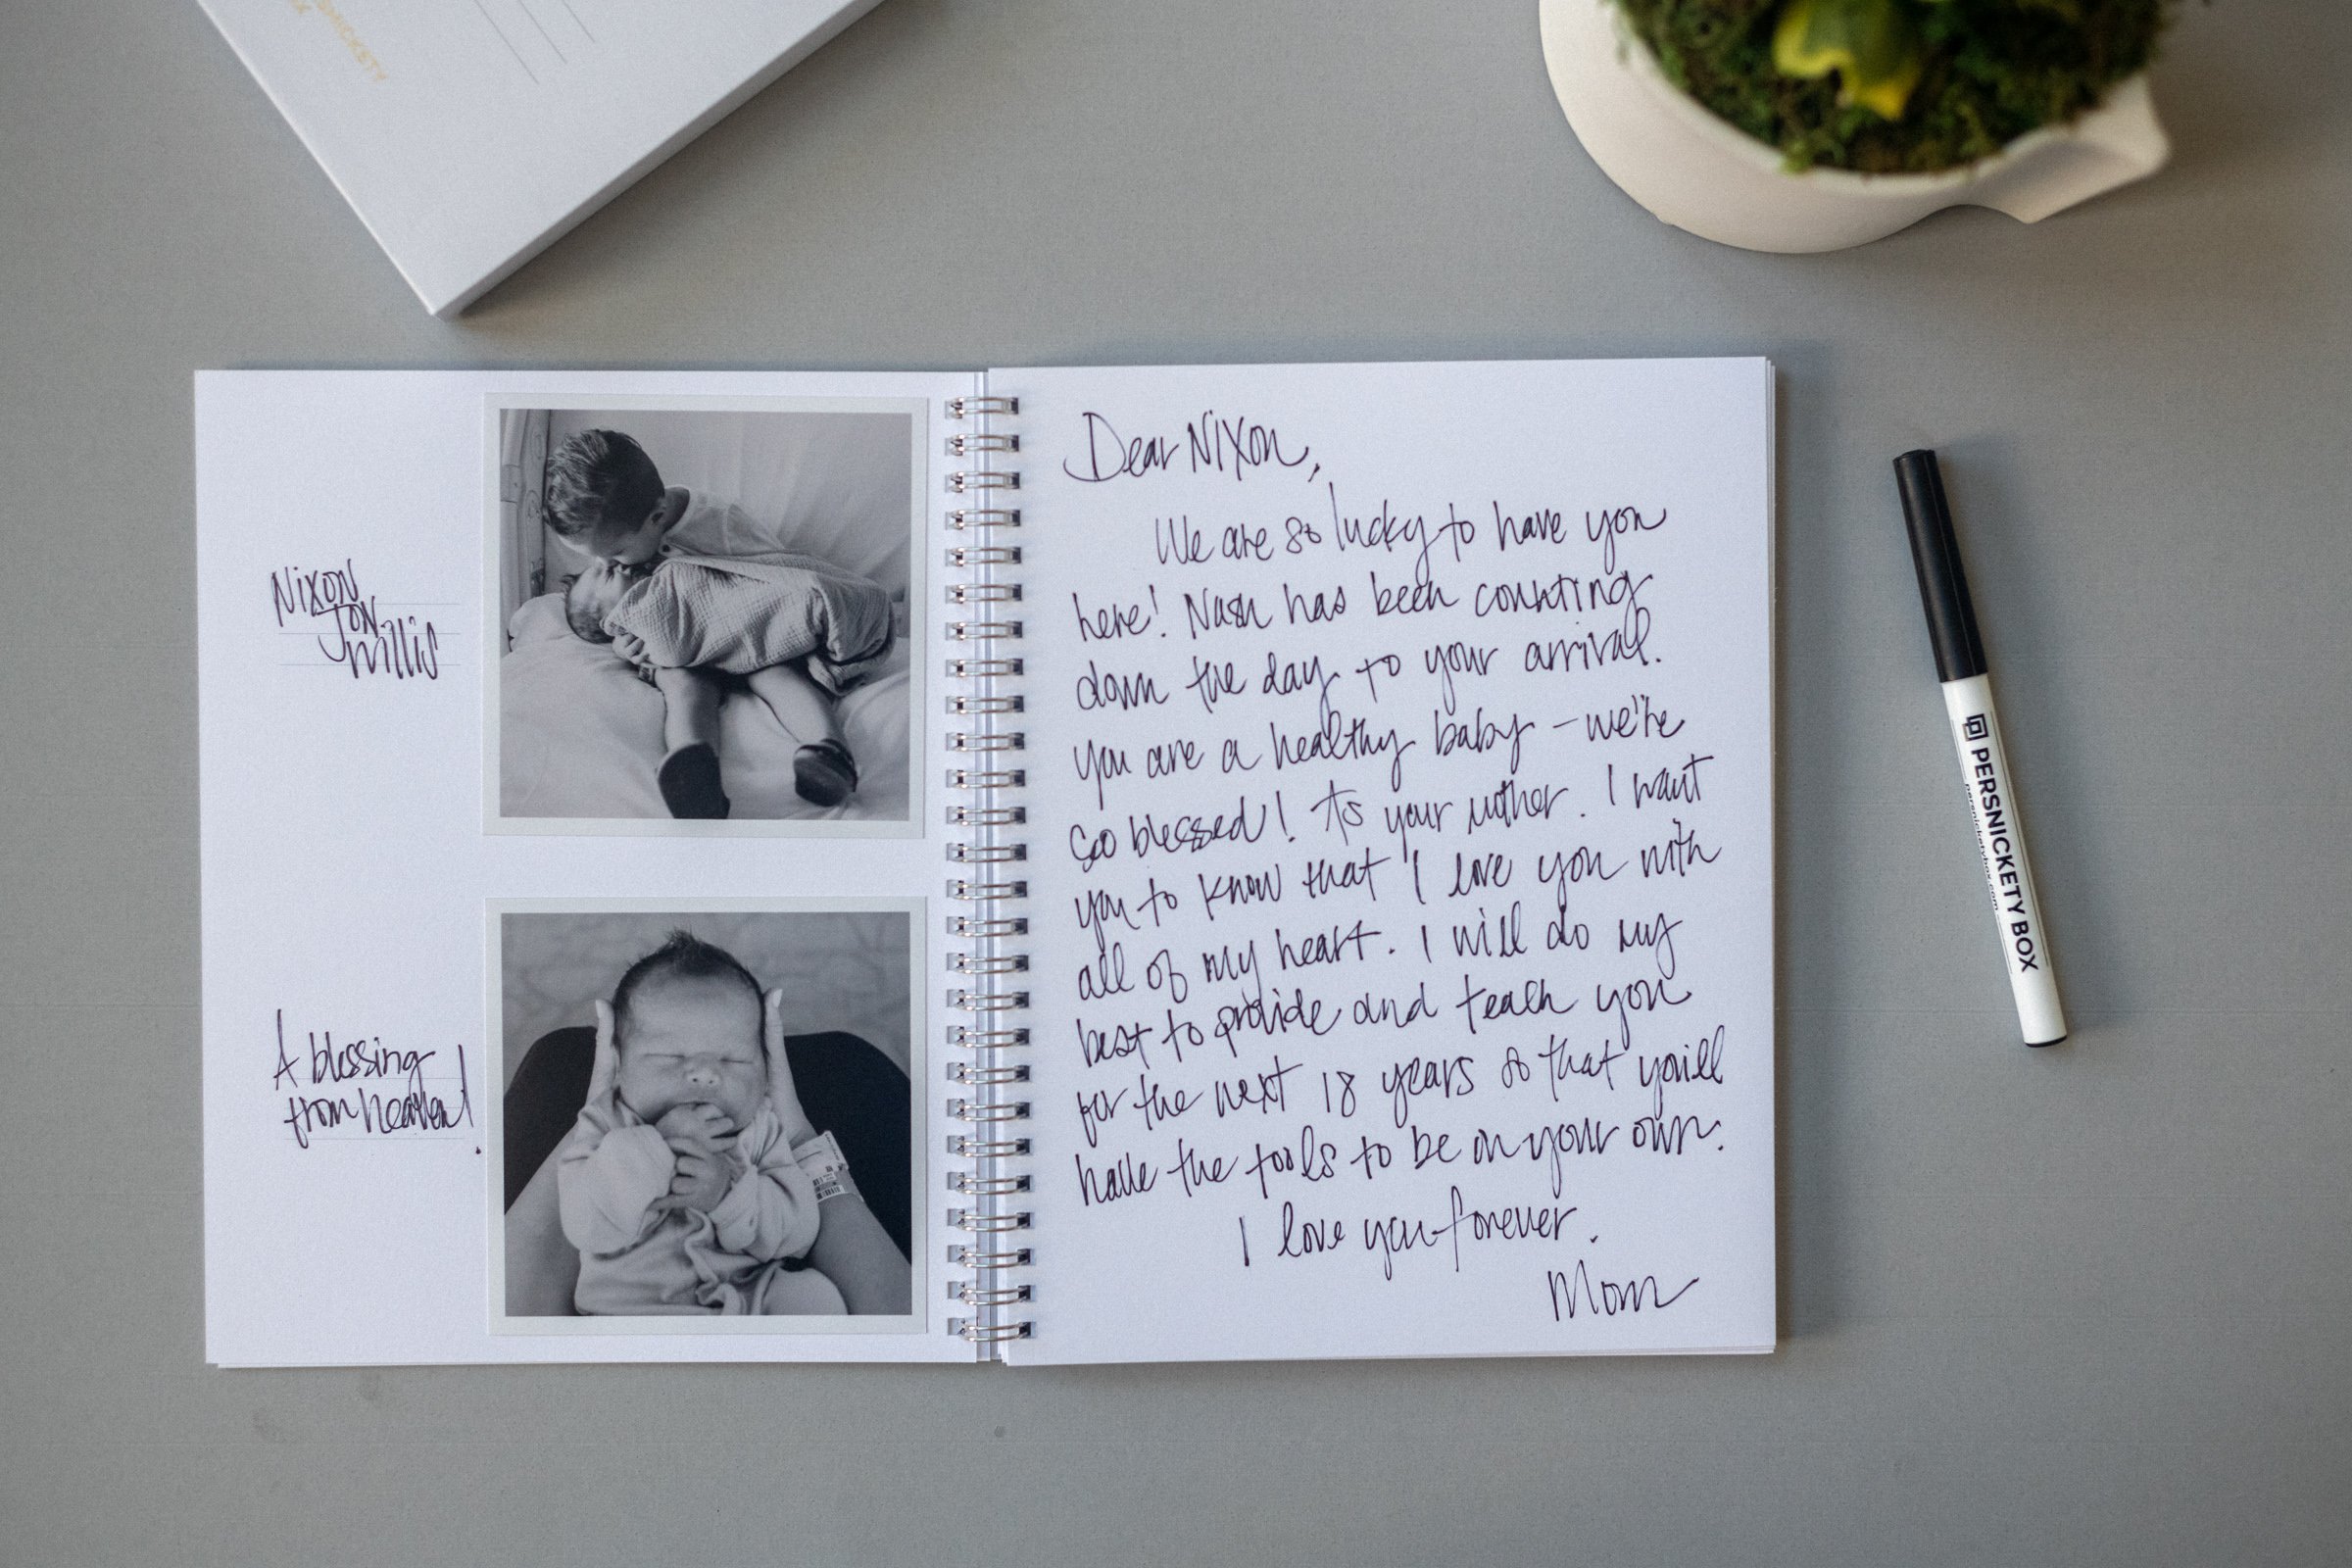 PERSNICKETY
Nixon
Jon
Willis
A blessing
from heaven!
Dear Nixon,
We are so lucky to have you
here! Nash has been counting
down the day to your arrival.
You are a healthy baby - we're
so blessed! As your mother. I want
you to know that I love you with
all of my heart. I will do my
best to provide and teach you
for the next 18 years so that you'll
have the tools to be on your own.
I love you forever.
Mom
PERSNICKETY BOX
persnicketybox.com